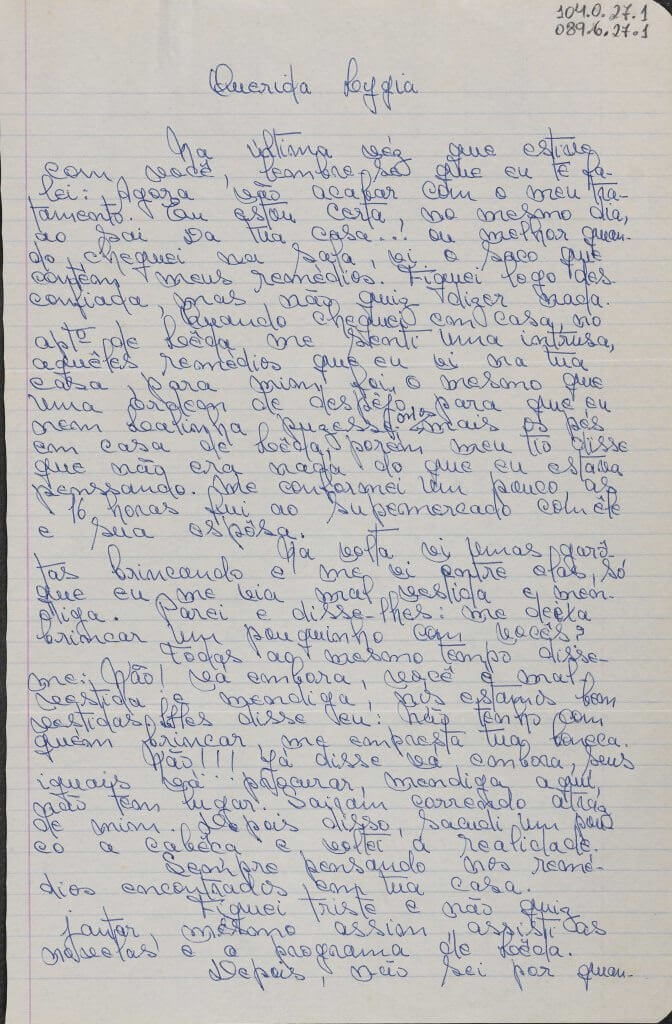 104.0.27.1
089.6.27.1
Querida Lygia
Na última vêz que estive
com você, lembre-se que eu te fa-
lei: Agora vão acabar com o meu tra-
tamento. Eu estou certa, no mesmo dia,
ao sai da tua casa...! ou melhor quan-
do cheguei na sala, vi o saco que
contém meus remédios. Fiquei logo des-
confiada, mas não quiz dizer nada.
Quando cheguei em casa, no
aptº de Loêda me senti uma intrusa,
aquêles remédios que eu vi na tua
casa, para mim foi o mesmo que
uma ordem de despêjo para que eu
nem Loalinha puzesse mais os pés
em casa de Loêda, porém meu tio disse
que não era nada do que eu estava
penssando. Me conformei um pouco, as
16 horas fui ao supermercado com êle
e sua espôsa.
Na volta vi umas garô-
tas brincando e me vi entre elas, só
que eu me via mal vestida e men-
diga. Parei e disse-lhes: me deixa
brincar um pouquinho com vocês?
Todas ao mesmo tempo disse-
me: Não! vá embora, você é mal
vestida e mendiga, nós estamos bem
vestidas lhes disse eu: não tenho com
quém brincar, me empresta tua boneca.
Não!!! Já disse vá embora, seus
iguais vá procurar, mendiga aqui,
não tem lugar. Saíram correndo atráz
de mim. Depois disso, sacudi um pou
co a cabêca e voltei a realidade.
Sempre pensando nos remé-
dios encontrados em tua casa.
Fiquei triste e não quiz
jantar, mesmo assim assisti as
novelas e o programa de Loêda.
Depois, não sei por quan-